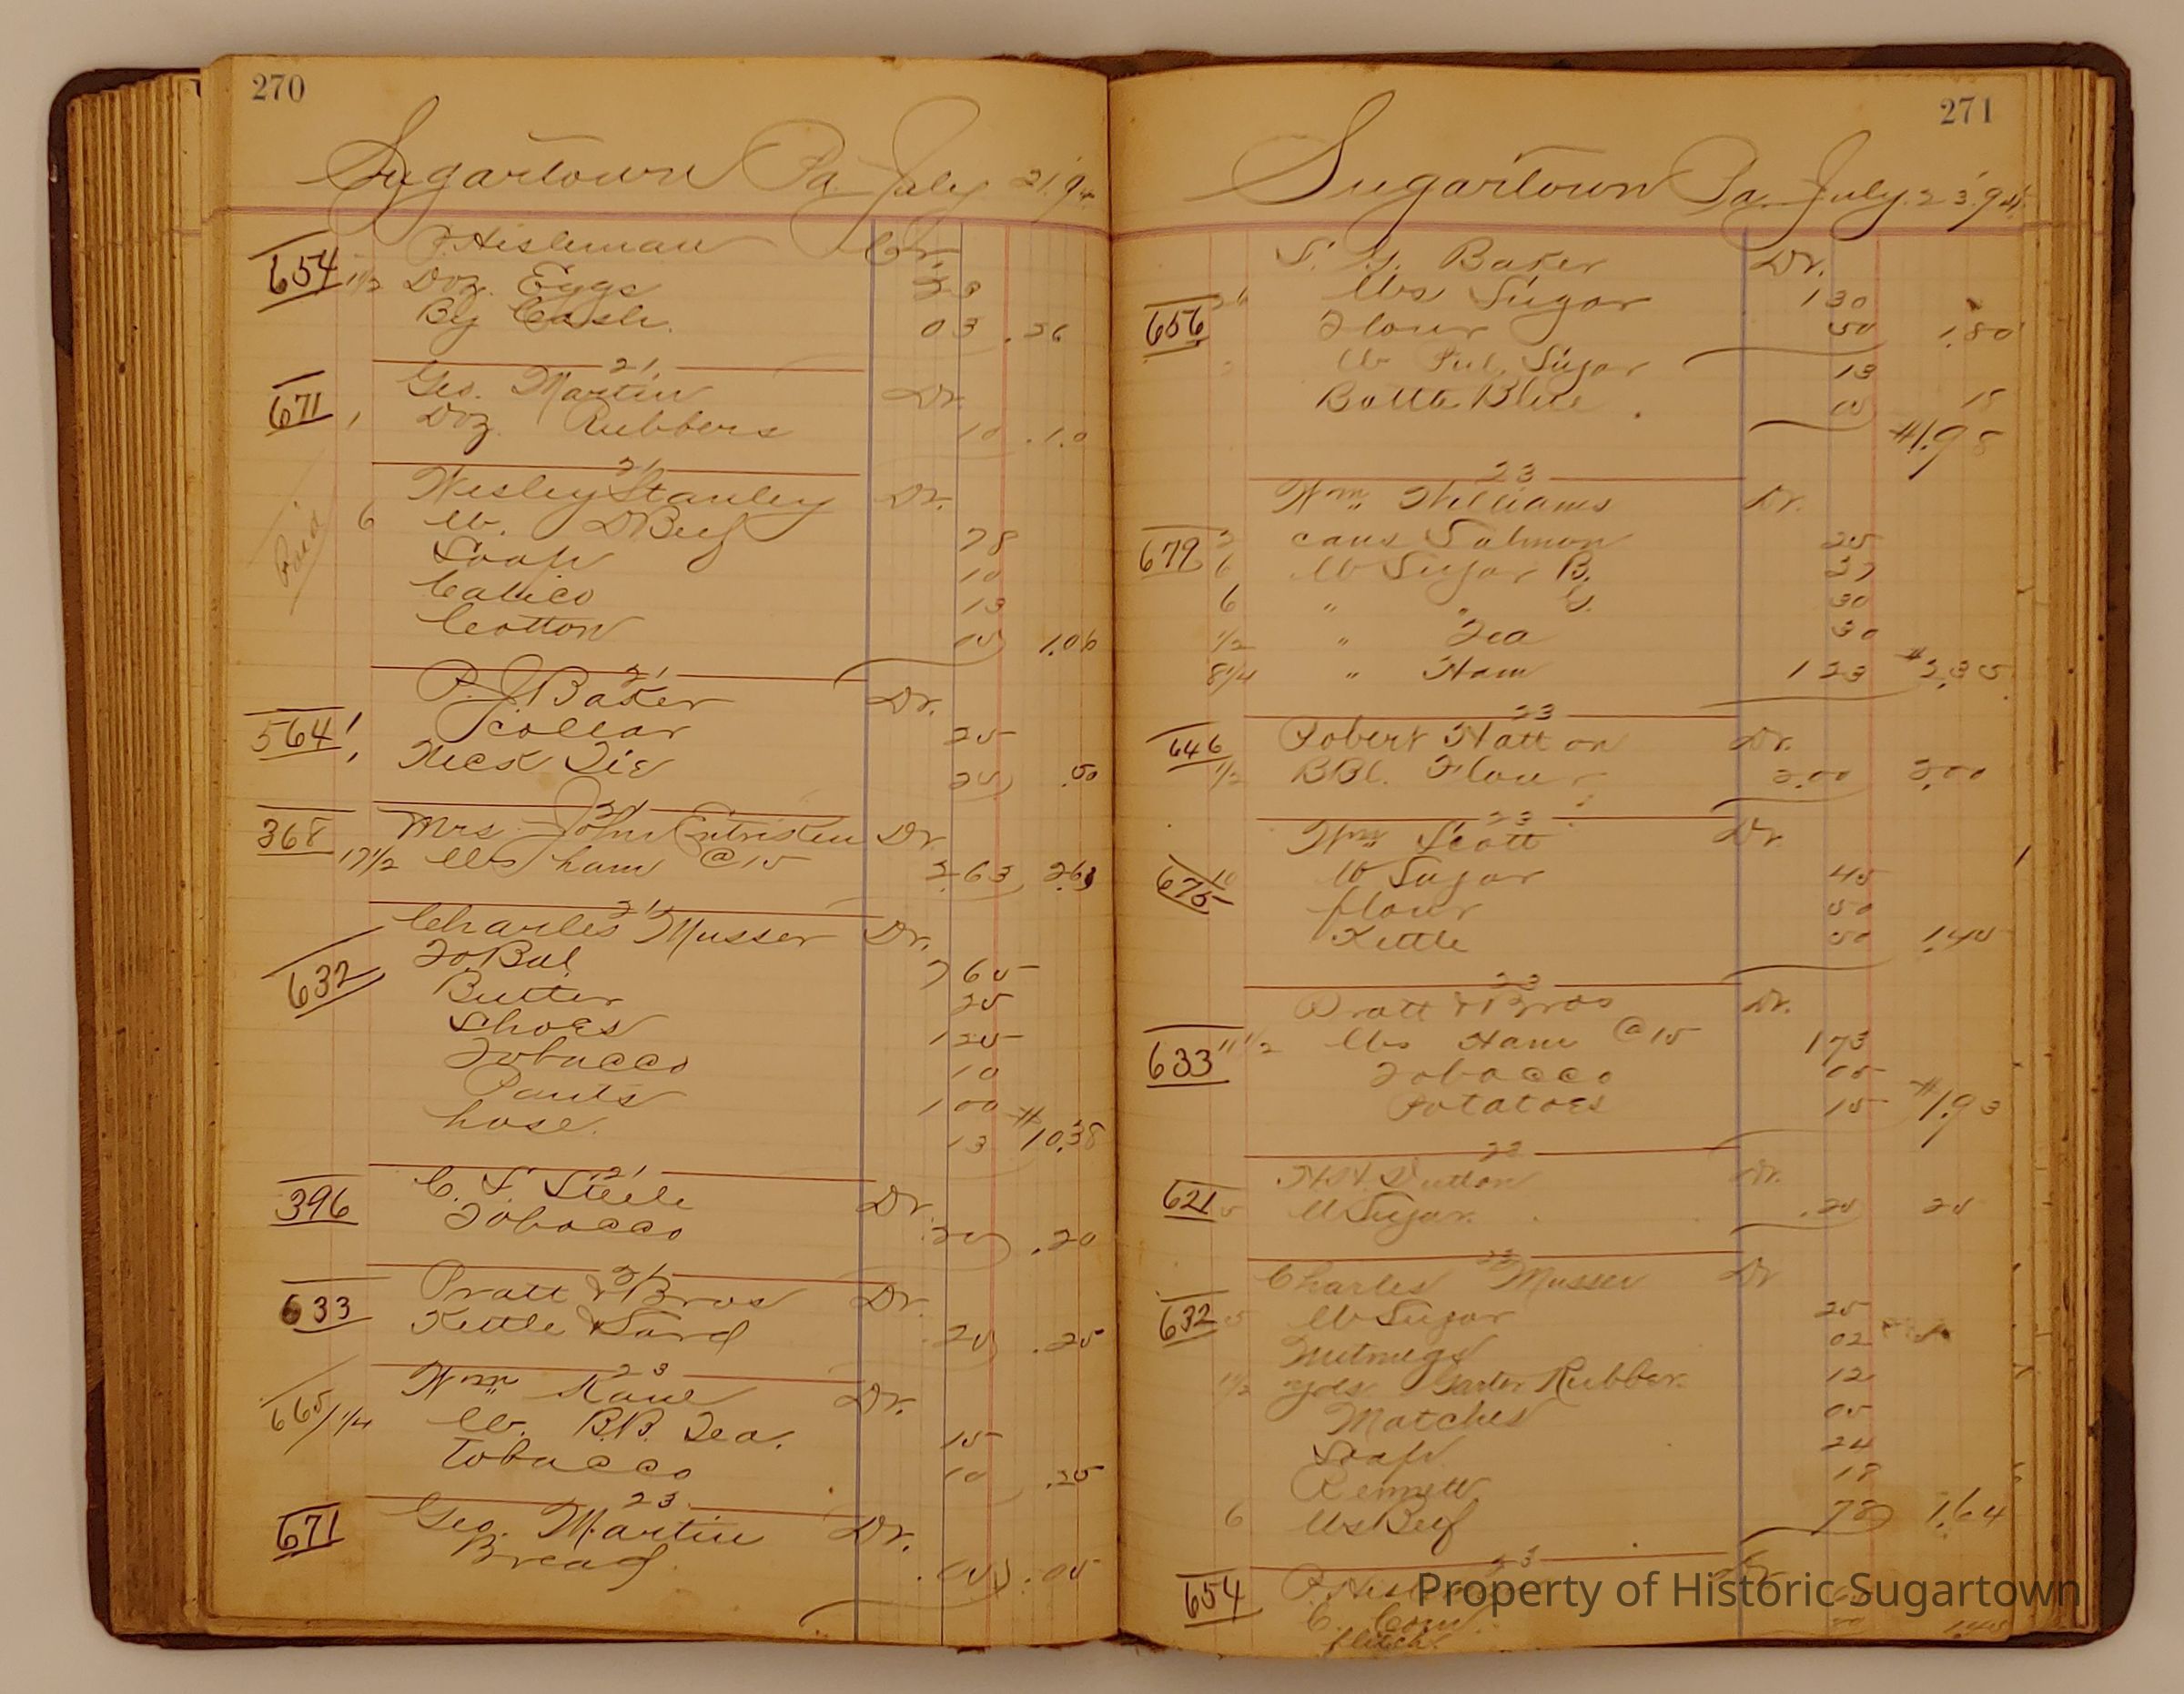 270
Sugartown Pa. July 21, 94
654 Hisleman Cr.
1 1/2 Doz. Eggs
By Cash. 03 .36
21,
671 Geo. Martin Dr.
1 Doz. Rubbers 10 .10
21
Wesley Stanley Dr.
Paid 6 lb. D Beef 78
Soap 10
Calico 13
Cotton 05 1.06
21
P. J. Baker Dr.
564 1 Collar 25
1 Neck Tie 25 .50
21
368 Mrs. John Entriken Dr
17 1/2 lbs ham @ 15 2 63 2.63
21
Charles Musser Dr.
632 To Bal 7 65
Butter 25
Shoes 1 25
Tobacco 10
Pants 1 00
hose. 13 #10.38
21
396 C. S. Steele Dr.
Tobacco 20 .20
21
633 Pratt & Bros Dr.
Kettle & Sand 25 .25
23
Wm Kane Dr.
665 1/4 lb. B.B. Tea. 15
Tobacco 10 .25
23
671 Geo. Martin Dr.
Bread .05 .05
271
Sugartown Pa. July. 23, 94
Baker Dr.
656 26 lbs Sugar 1 30
Flour 50 1.80
lb Pul. Sugar 13
Bottle Blue 05 18
#1.98
23
Wm Williams Dr.
679 2 cans Salmon 25
6 lb Sugar B. 27
6 " " G. 30
1/2 " Tea 30
8 1/4 " Ham 1 23 #2.35
23
646 Robert Hatton Dr.
1/2 BBl. Flour 2.00 2.00
23
Wm Scott Dr.
675 10 lb Sugar 45
flour 50
Kettle 50 1.45
23
Pratt & Bros Dr.
633 11 1/2 lbs Ham @ 15 1 73
Tobacco 05
Potatoes 15 #1.93
23
Dutton Dr.
621 5 lb Sugar. .25 25
23
Charles Musser Dr
632 5 lb Sugar 25
Nutmegs 02
1 1/2 yds Garter Rubber. 12
Matches 05
Soap 24
Rennett 18
6 lbs Beef 78 1.64
23
654
C. Corn.
flitch. 1.45
Property of Historic Sugartown